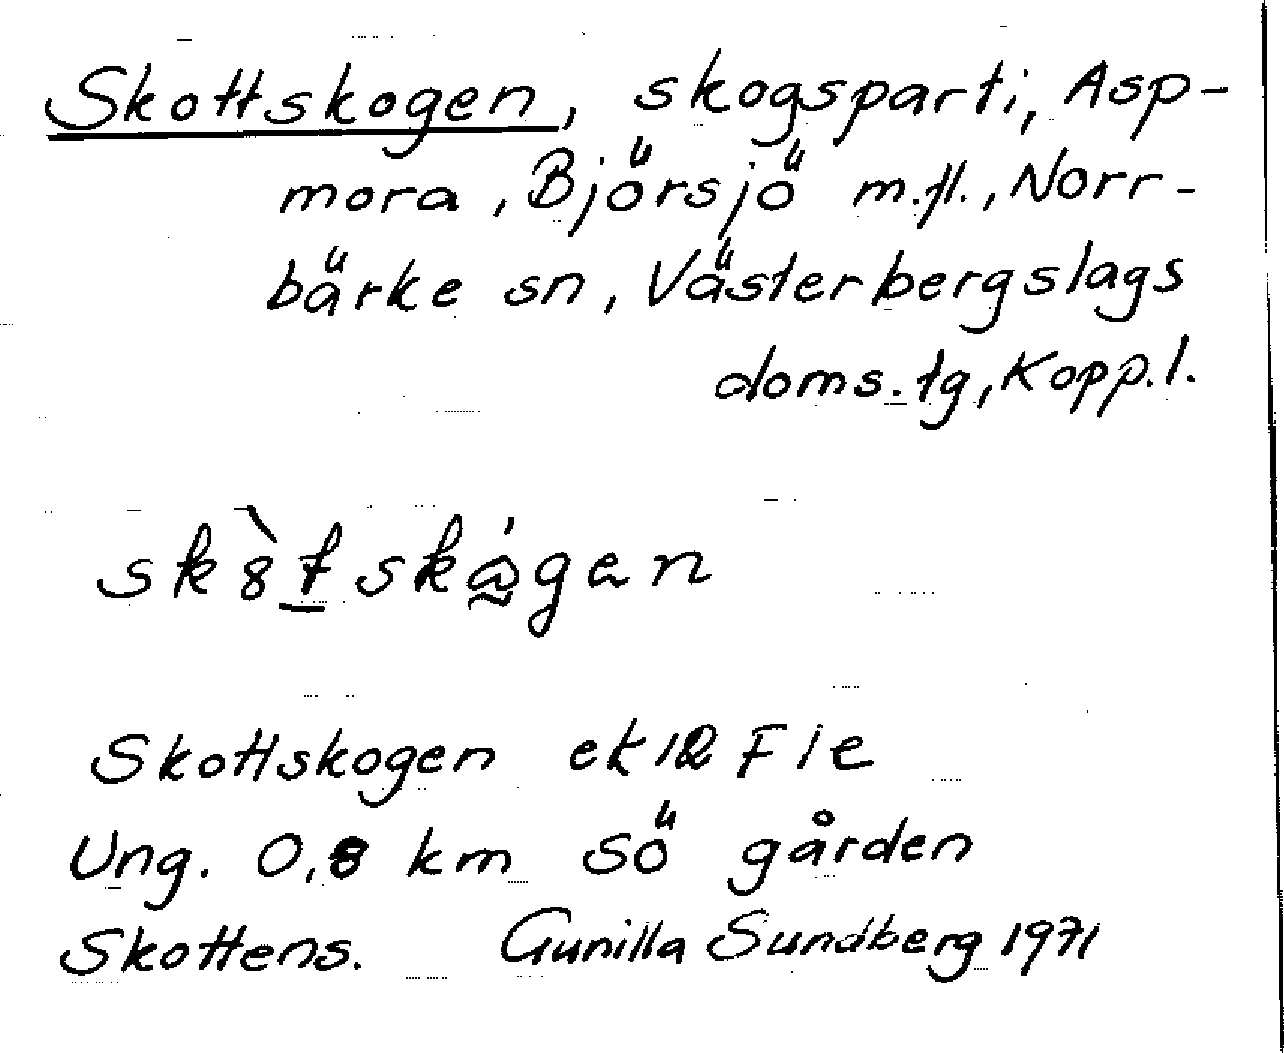 Skottskogen, skogsparti, Asp-
mora, Björsjö m.fl., Norr-
bärke sn, Västerbergslags
doms. tg, Kopp. l.
Skottskogen ek 12 F 1e
Ung. 0,8 km sö gården
Skottens. Gunilla Sundberg 1971